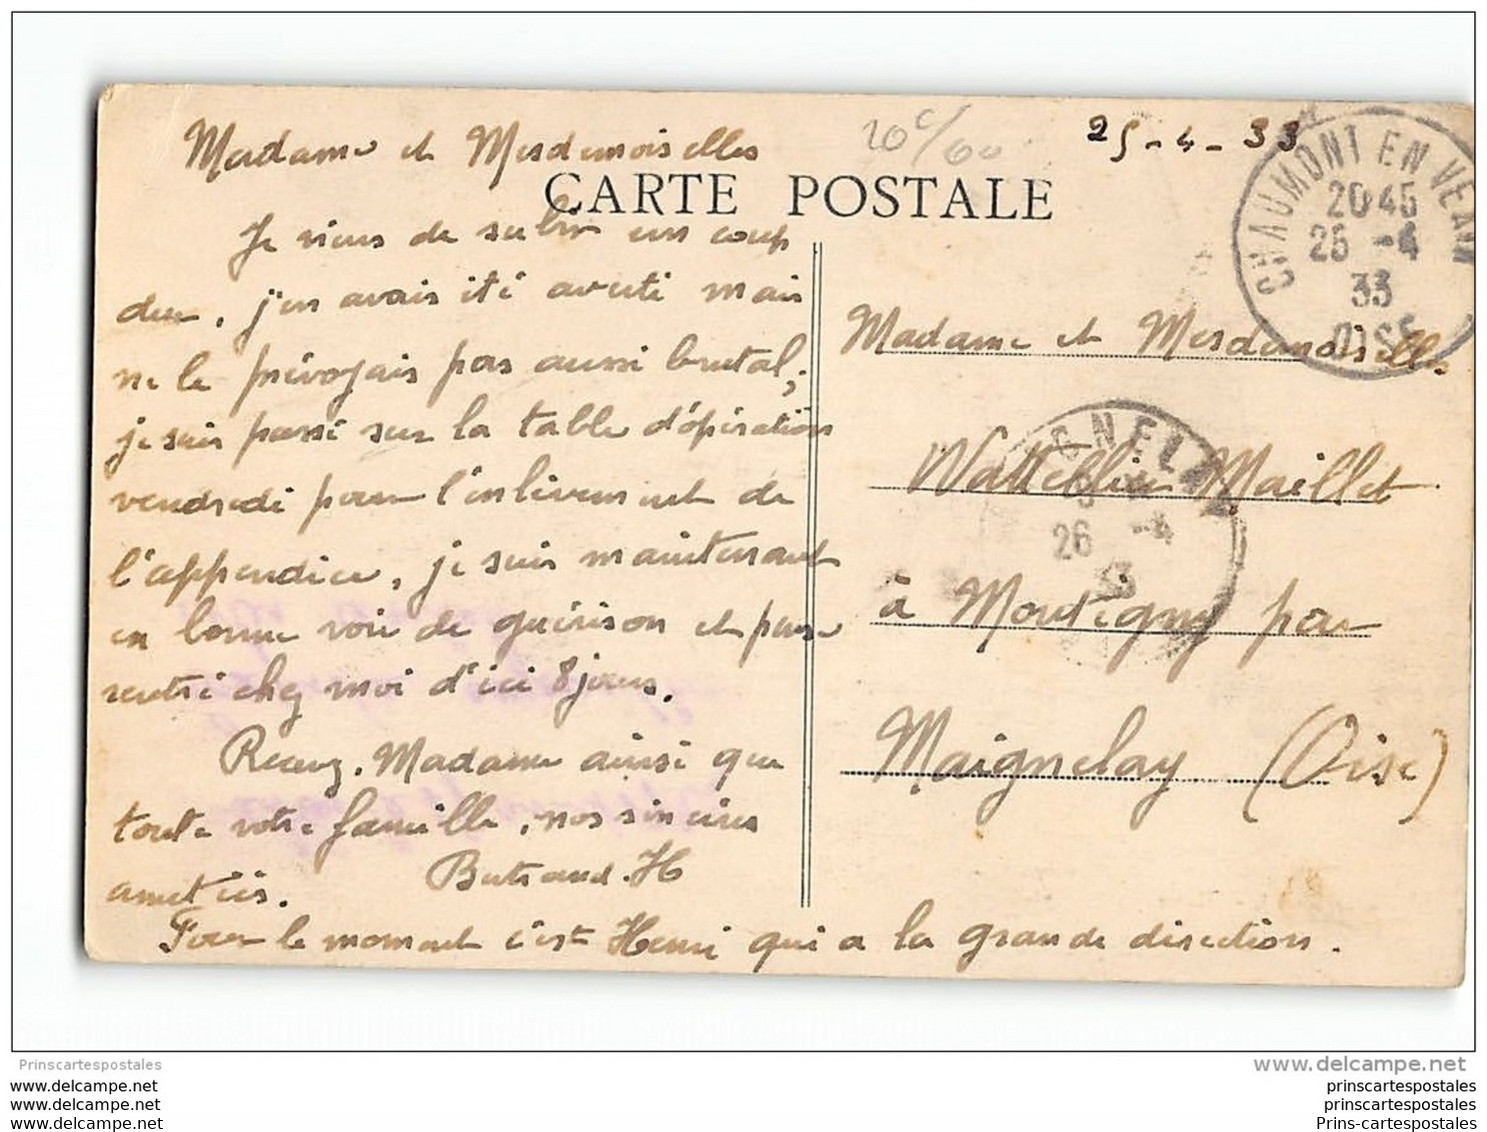 25-4-33
Madame et Mesdemoiselles
CARTE POSTALE
Je viens de subir un coup
dur, j'en avais été averti mais
ne le prévoyais pas aussi brutal;
je suis passé sur la table d'opération
vendredi pour l'enlèvement de
l'appendice, je suis maintenant
en bonne voie de guérison et pense
rentré chez moi d'ici 8 jours.
Recevez. Madame ainsi que
toute votre famille, nos sincères
amitiés. Bertrand. H
Pour le moment c'est Henri qui a la grande direction.
CHAUMONT EN VEXIN
20 45
25 -4
33
OISE
Madame et Mesdemoiselles
Maillet
à Montigny par
Maignelay (Oise)
GNELAY
26 -4
33
Prinscartespostales
www.delcampe.net
www.delcampe.net
www.delcampe.net
www.delcampe.net
prinscartespostales
prinscartespostales
Prins-cartespostales